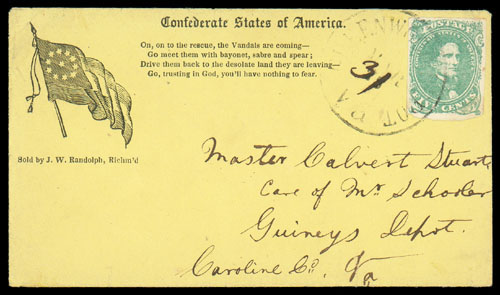 Confederate States of America.
On, on to the rescue, the Vandals are coming—
Go meet them with bayonet, sabre and spear;
Drive them back to the desolate land they are leaving—
Go, trusting in God, you'll have nothing to fear.
Sold by J. W. Randolph, Richm'd
31
POSTAGE
FIVE CENTS
VA
Master Calvert Stuart
Care of Mr Schooler
Guineys Depot.
Caroline Co. Va